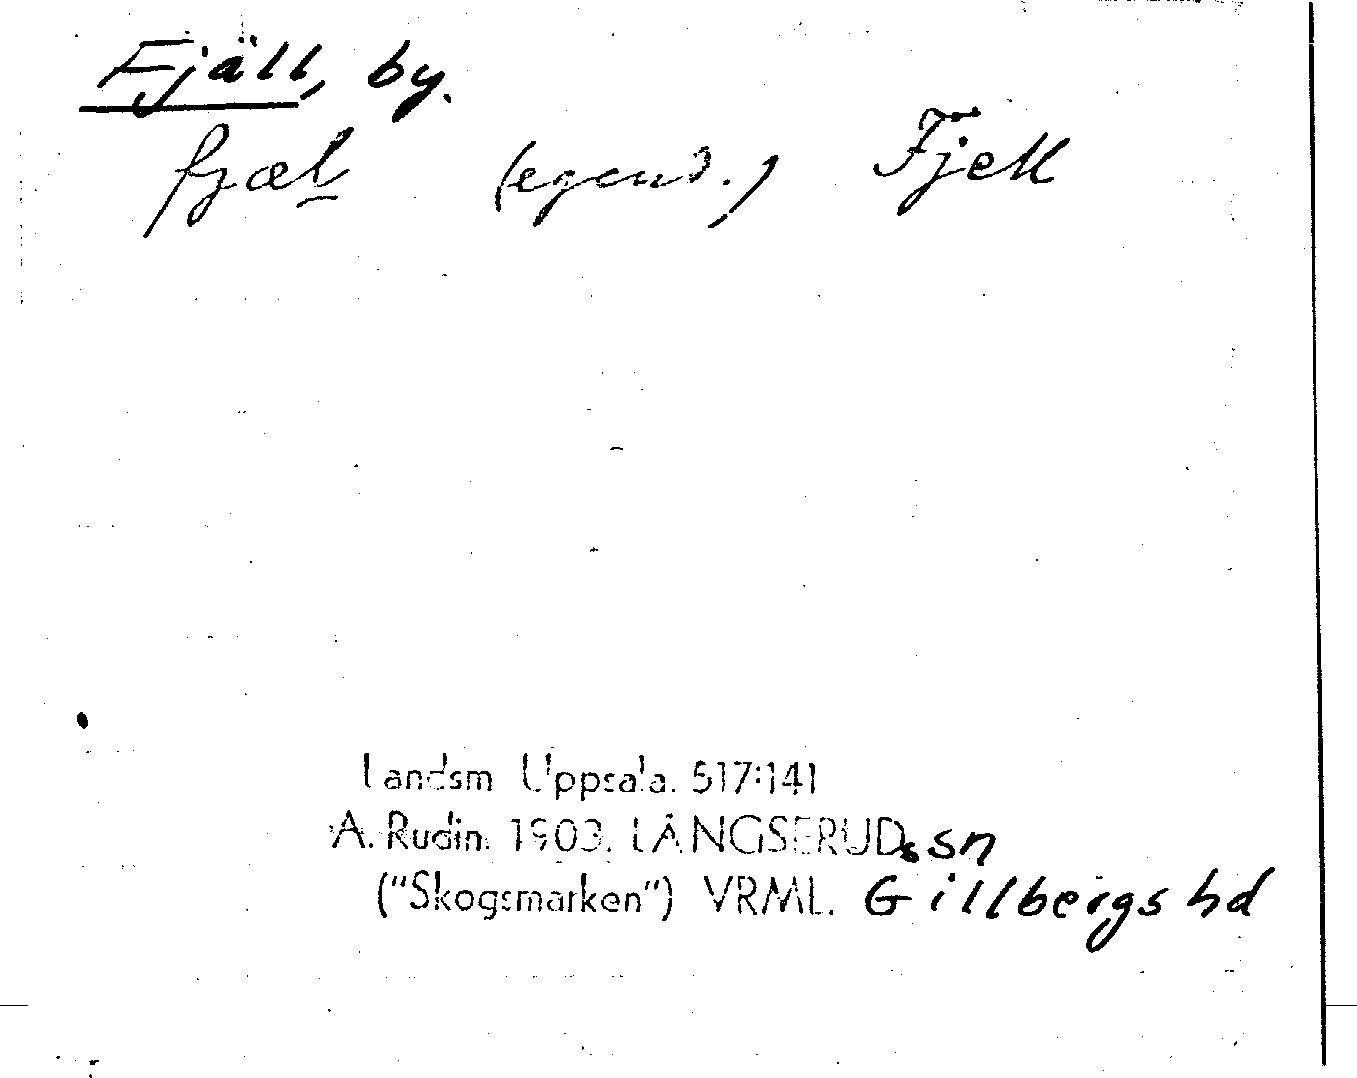 Fjäll, by.
fjæl (egend.) Fjell
Landsm Uppsala. 517:141
A. Rudin. 1903. LÅNGSERUDs sn
("Skogsmarken") VRML. Gillbergs hd